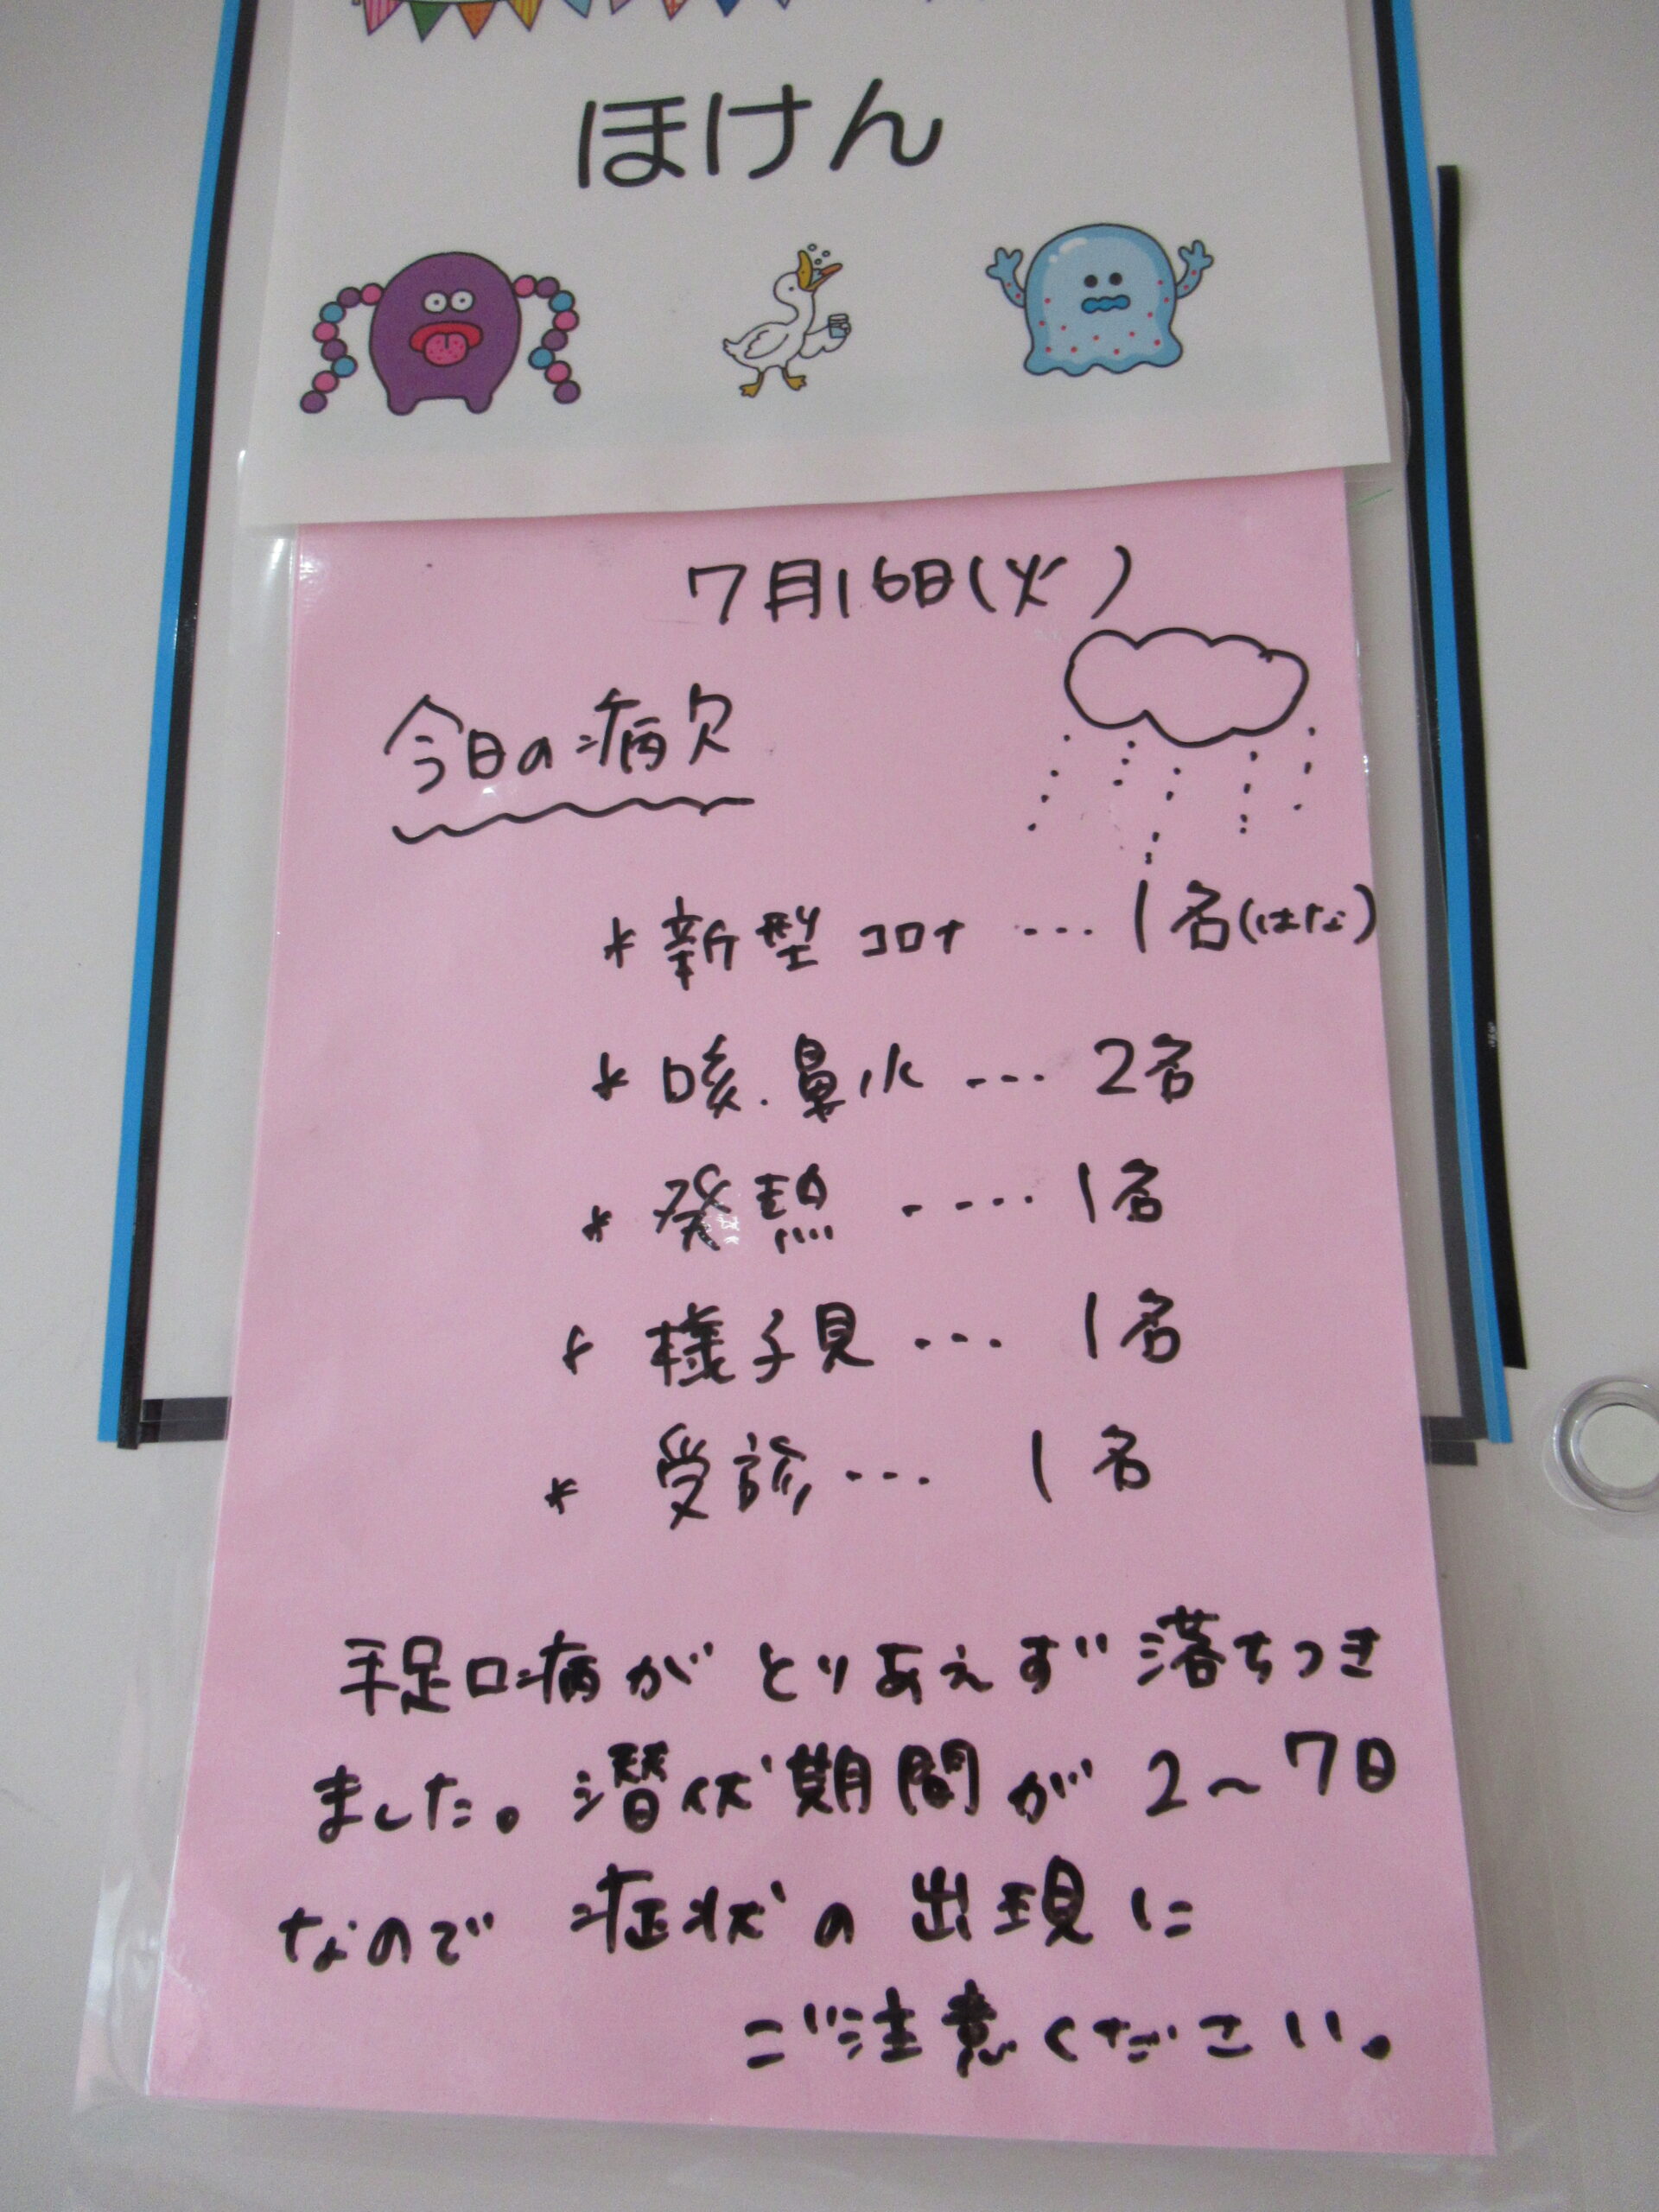 ほけん
7月16日(火)
今日の病欠
* 新型コロナ … 1名(はな)
* 咳.鼻水 … 2名
* 発熱 …. 1名
* 様子見 … 1名
* 受診 … 1名
手足口病がとりあえず落ちつき
ました。潜伏期間が2~7日
なので 症状の出現に
ご注意ください。